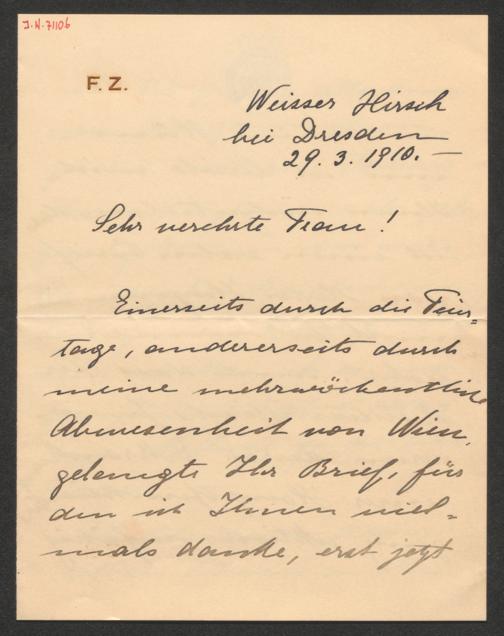 I.N. 71106
F. Z.
Weisser Hirsch
bei Dresden
29. 3. 1910. —
Sehr verehrte Frau!
Einerseits durch die Feier-
tage, andererseits durch
meine mehrwöchentliche
Abwesenheit von Wien,
gelangte Ihr Brief, für
den ich Ihnen viel-
mals danke, erst jetzt